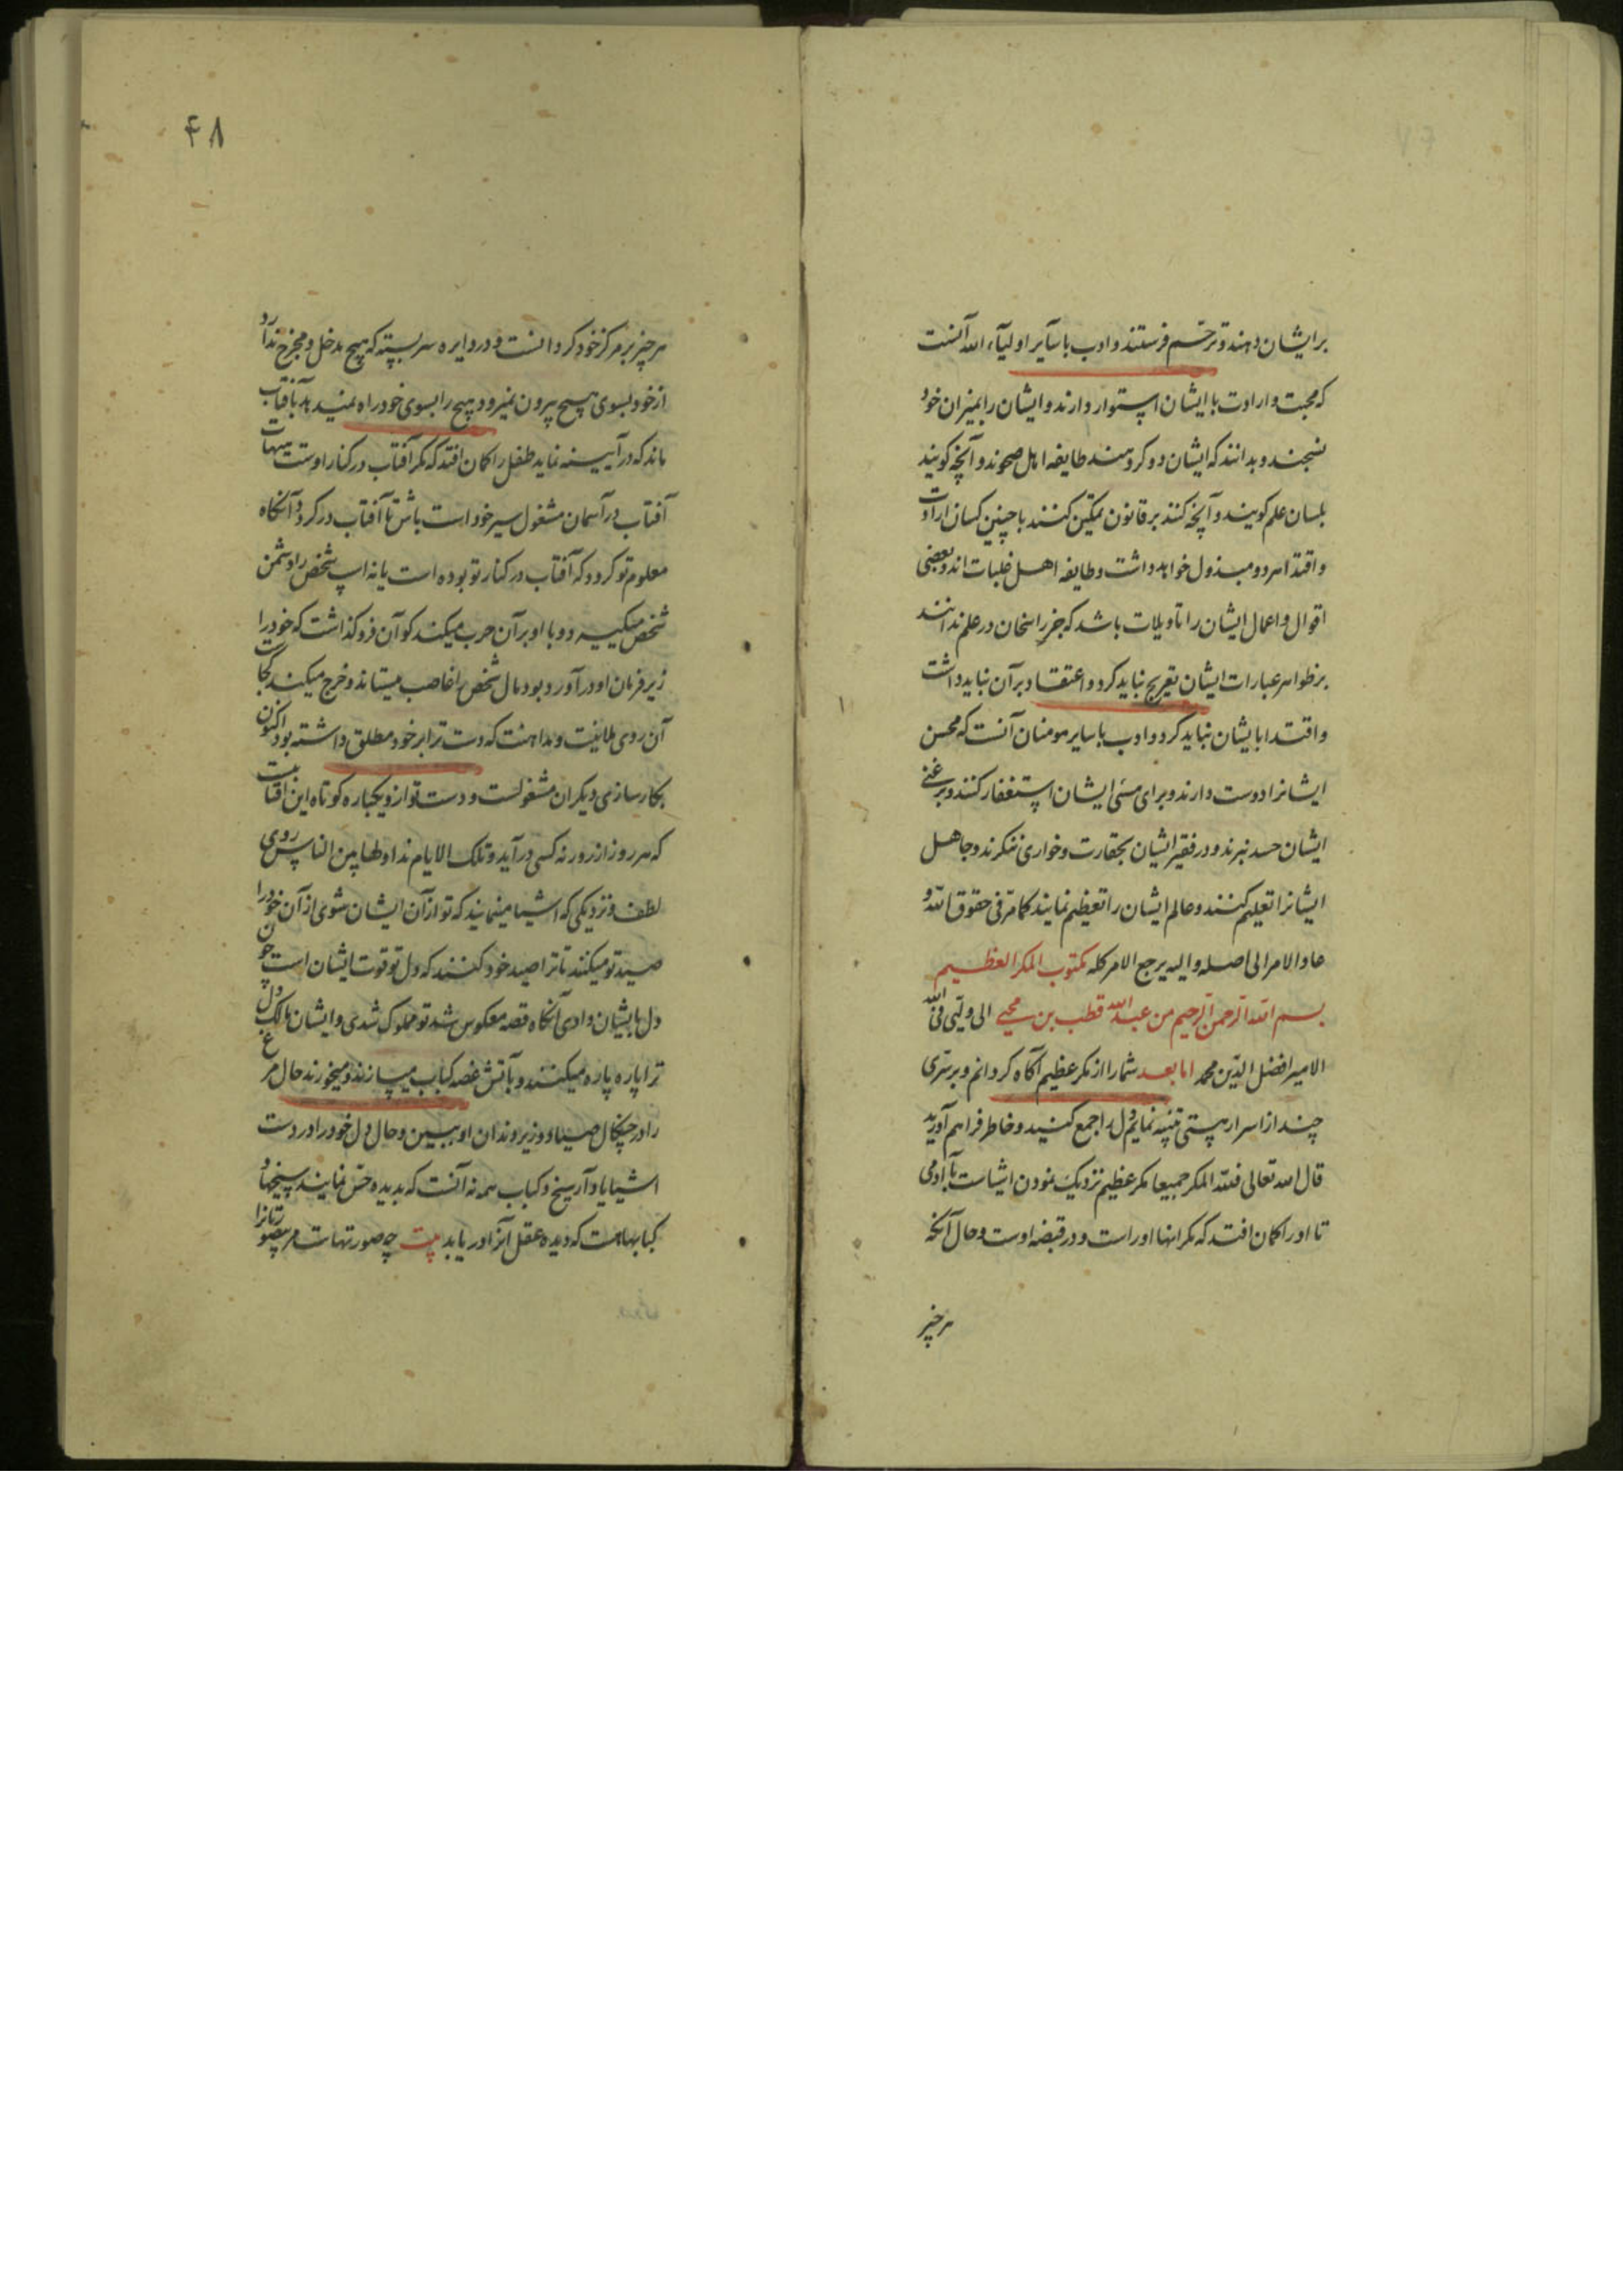 بر ایشان دهند و ترحّم فرستند و ادب با سآیر اولیآء الله آنست
که محبت و ارادت با ایشان استوار دارند و ایشان را بمیزان خود
نسنجند و بدانند که ایشان دو کروهند طایفه اهل صحوند و آنچه کویند
بلسان علم کویند و آنچه کنند بر قانون تمکین کنند با چنین کسان ارادت
و اقتدا هر دو مبذول خواهد داشت و طایفه اهل غلبات اند و بعضی
اقوال و اعمال ایشان را تاویلات باشد که جز راسخان در علم ندانند
بر ظواهر عبارات ایشان تعریج نباید کرد و اعتقاد بر آن نباید داشت
و اقتدا بایشان نباید کرد و ادب با سایر مومنان آنست که محسن
ایشانرا دوست دارند و برای مسئ ایشان استغفار کنند و بر غنی
ایشان حسد نبرند و در فقیر ایشان بحقارت و خواری ننکرند و جاهل
ایشانرا تعلیم کنند و عالم ایشان را تعظیم نمایند کما مرّ فی حقوق الله و
عاد الامر الی اصله و الیه یرجع الامر کله مکتوب المکر العظیم
بسم الله الرّحمن الرّحیم من عبد الله قطب بن محیی الی ولیّی فی الله
الامیر افضل الدّین محمد اما بعد شما را از مکر عظیم آکاه کردانم و بر سرّی
چند از اسرار هستی تنبیه نمایم دل را جمع کنید و خاطر فراهم آورید
قال الله تعالی فلله المکر جمیعا مکر عظیم نزدیک نمودن اشیاست بآدمی
تا او را کمان افتد که مکر انها او راست و در قبضه اوست و حال آنکه
هر چیز
۴۸
هر چیز بر مرکز خود کردانست و در دایره سربسته که هیچ مدخل و مخرج ندارد
از خود بسوی هیچ بیرون نمیرود و هیچ را بسوی خود راه نمیدهد بآفتاب
ماند که در آیینه نماید طفل را کمان افتد که مکر آفتاب در کنار اوست هیهات
آفتاب در آسمان مشغول سیر خود است باش تا آفتاب در کردد و آنکاه
معلوم تو کردد که آفتاب در کنار تو بوده است یا نه اسب شخص را دشمن
شخص میکیرد و با او بر آن حرب میکند کو آن فروکذاشت که خود را
زیر فرمان او در آورده بود مال شخص را غاصب میستاند و خرج میکند کجاست
آن روی ملاینت و مداهنت که دست ترا بر خود مطلق داشته بود اکنون
بکارسازی دیکران مشغولست و دست تو از و یکباره کوتاه این آفتابیست
که هر روز از روزنه کسی در آید و تلک الایام نداولها بین الناس روی
لطف و نزدیکی که اشیا مینمایند که تو از آن ایشان شوی از آن خود را
صید تو میکنند تا ترا صید خود کنند که دل تو قوت ایشان است چون
دل بایشان دادی آنکاه قصه معکوس شد تو مملوک شدی و ایشان مالک دل
ترا پاره پاره میکنند و بآتش غصه کباب میسازند و میخورند حال مرغ
را در چنکال صیاد و زیر دندان او ببین و حال دل خود را در دست
اشیا یاد آر سیخ و کباب همه نه آنست که بدیده حسّ نمایند سیخها و
کبابهاست که دیده عقل آنرا در یابد بیت چه صورتهاست مر بیصورتانرا